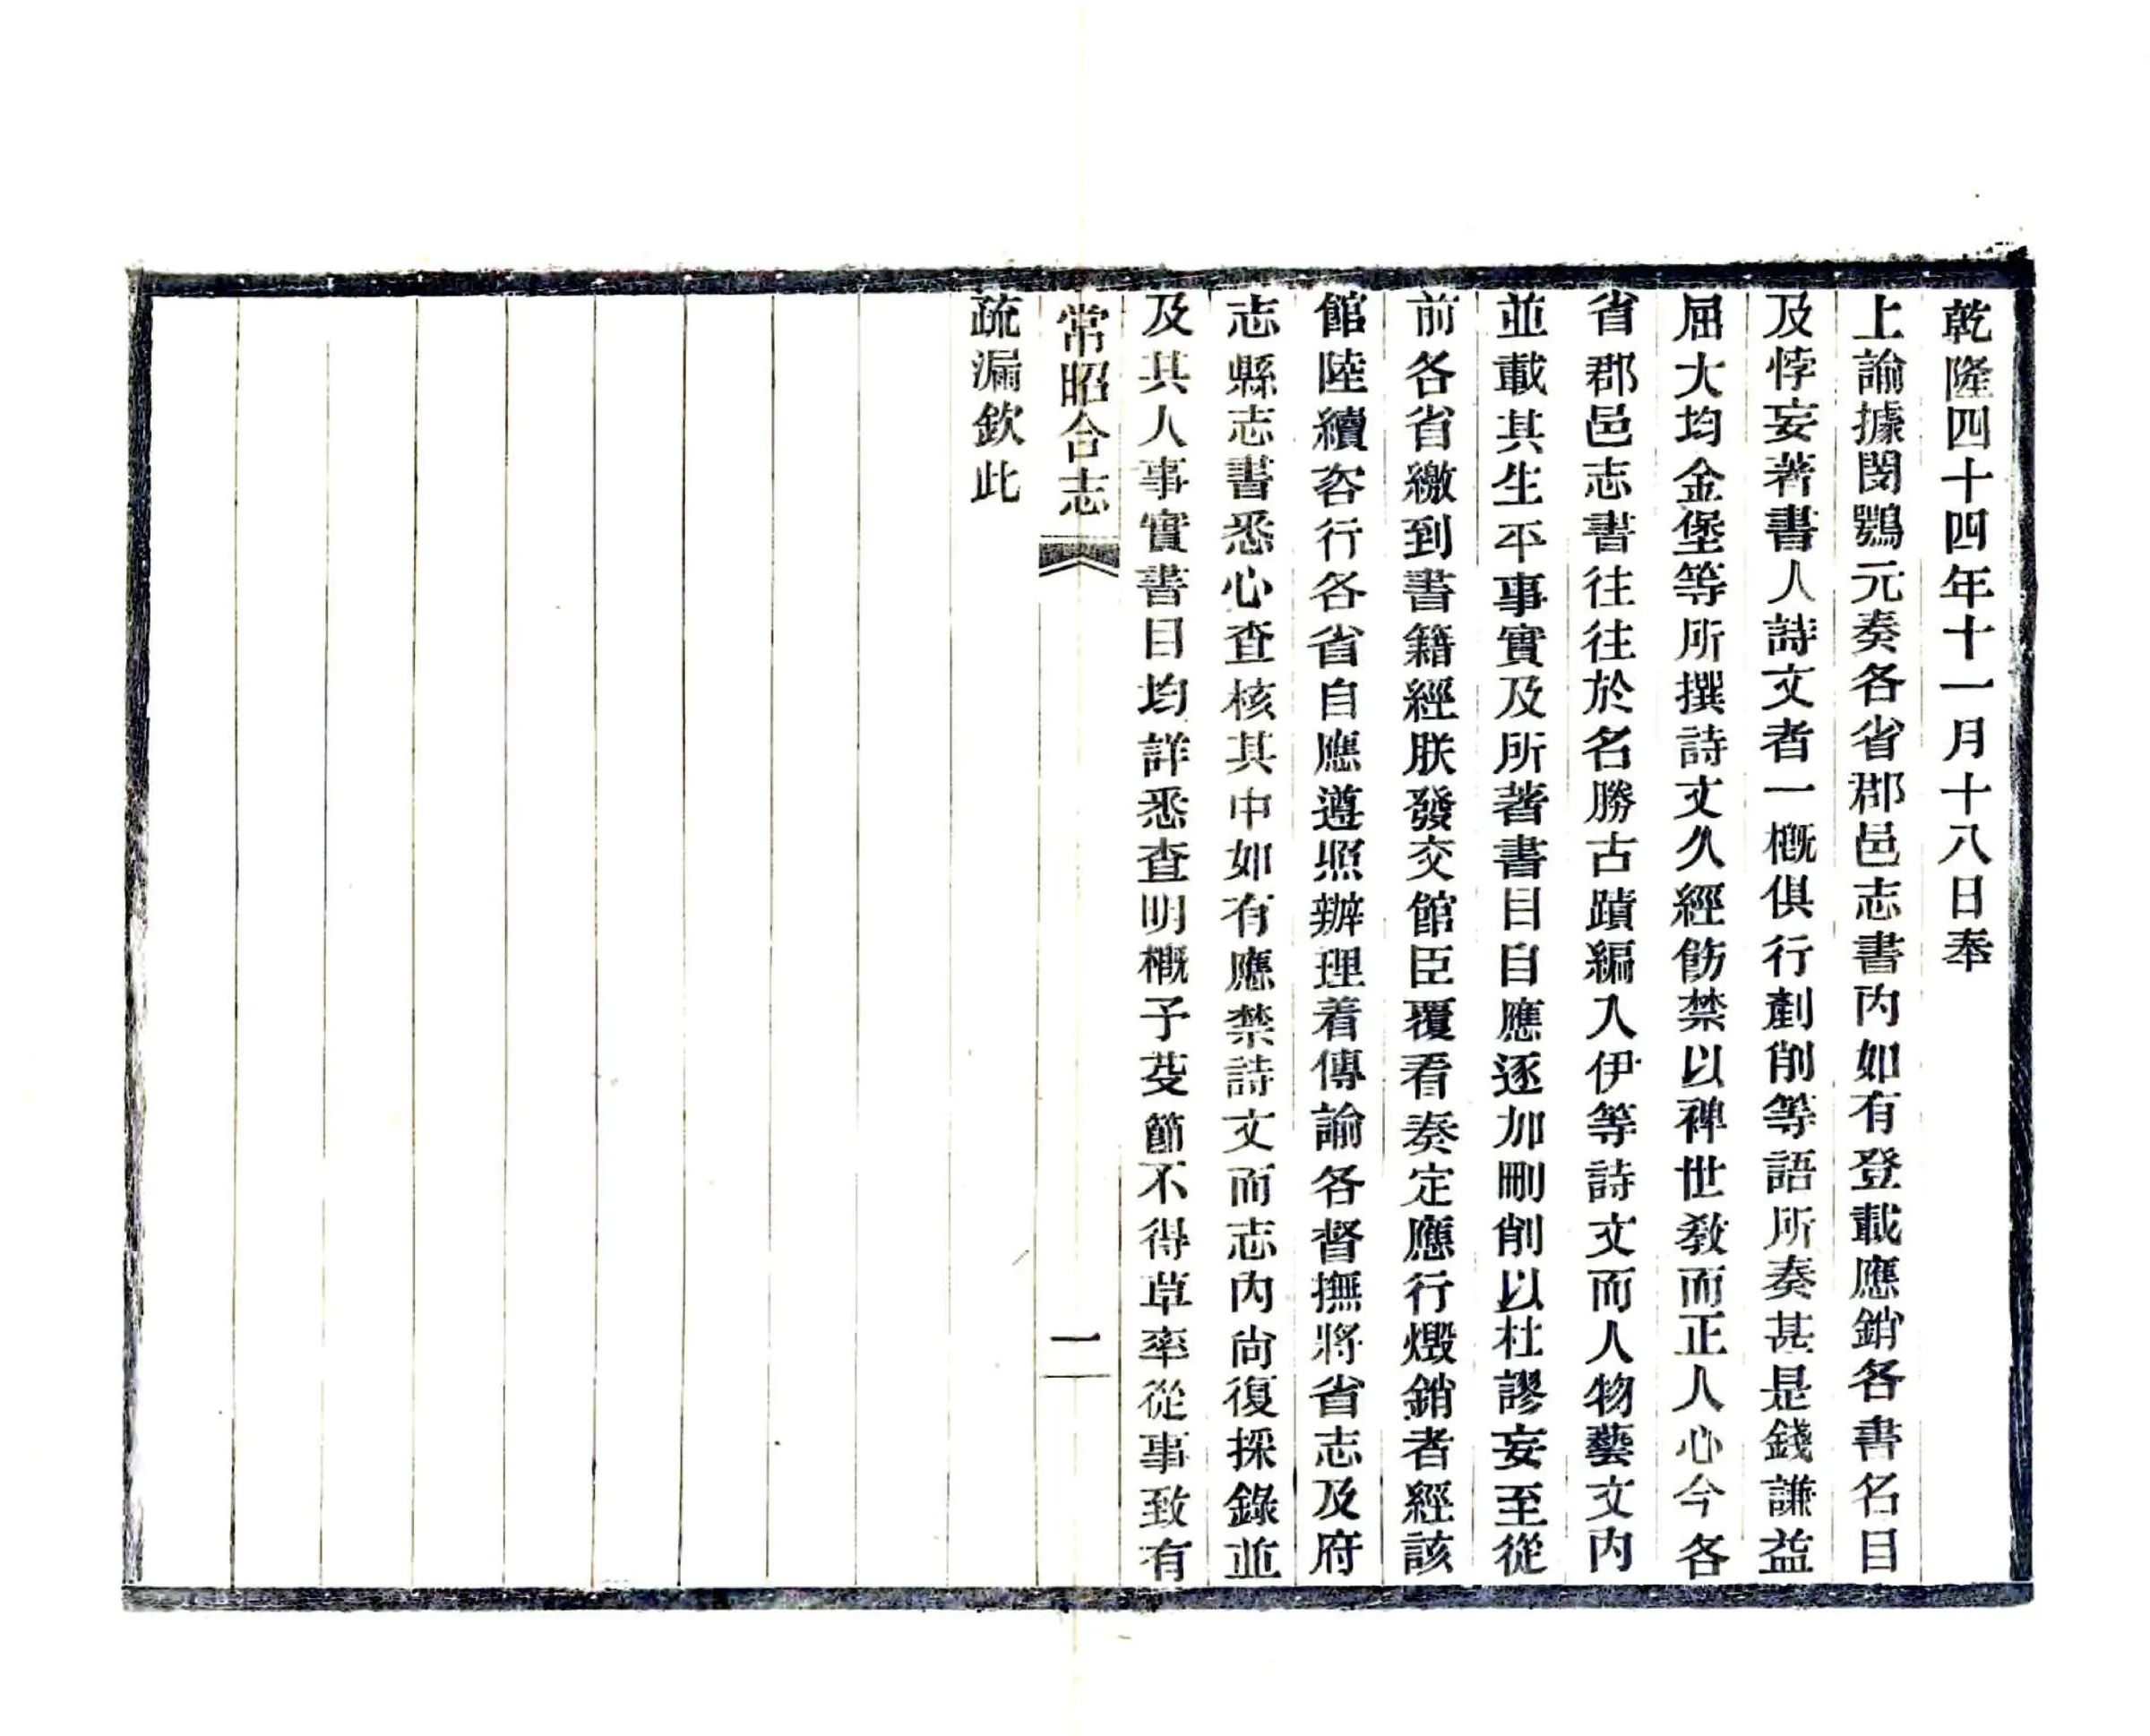 乾隆四十四年十一月十八日奉
上諭據閔鶚元奏各省郡邑志書内如有登載應銷各書名目
及悖妄著書人詩文者一概俱行剷削等語所奏甚是錢謙益
屈大均金堡等所撰詩文久經飭禁以裨世敎而正人心今各
省郡邑志書往往於名勝古蹟編入伊等詩文而人物藝文内
並載其生平事實及所著書目自應逐加刪削以杜謬妄至從
前各省繳到書籍經朕發交館臣覆看奏定應行燬銷者經該
館陸續咨行各省自應遵照辦理着傳諭各督撫將省志及府
志縣志書悉心查核其中如有應禁詩文而志内尙復採錄並
及其人事實書目均詳悉查明概予芟節不得草率從事致有
常昭合志
一
疏漏欽此